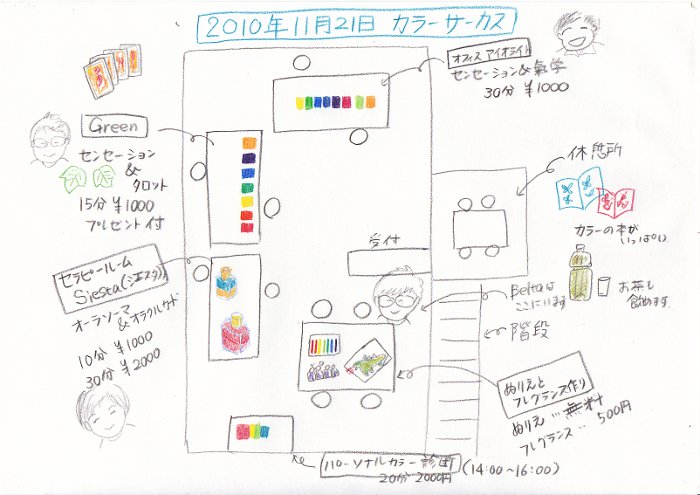 2010年11月21日 カラーサーカス
オフィス アイオライト
センセーション&氣学
30分 ¥1000
Green
センセーション
&
タロット
15分 ¥1000
プレゼント付
休憩所
カラーの本が
いっぱい
お茶も
飲めます
受付
セラピールーム
Siesta(シエスタ)
オーラソーマ
&オラクルカード
10分 ¥1000
30分 ¥2000
Beltaは
ここにいます
階段
ぬりえと
フレグランス作り
ぬりえ…無料
フレグランス…500円
パーソナルカラー診断(14:00~16:00)
20分 2000円